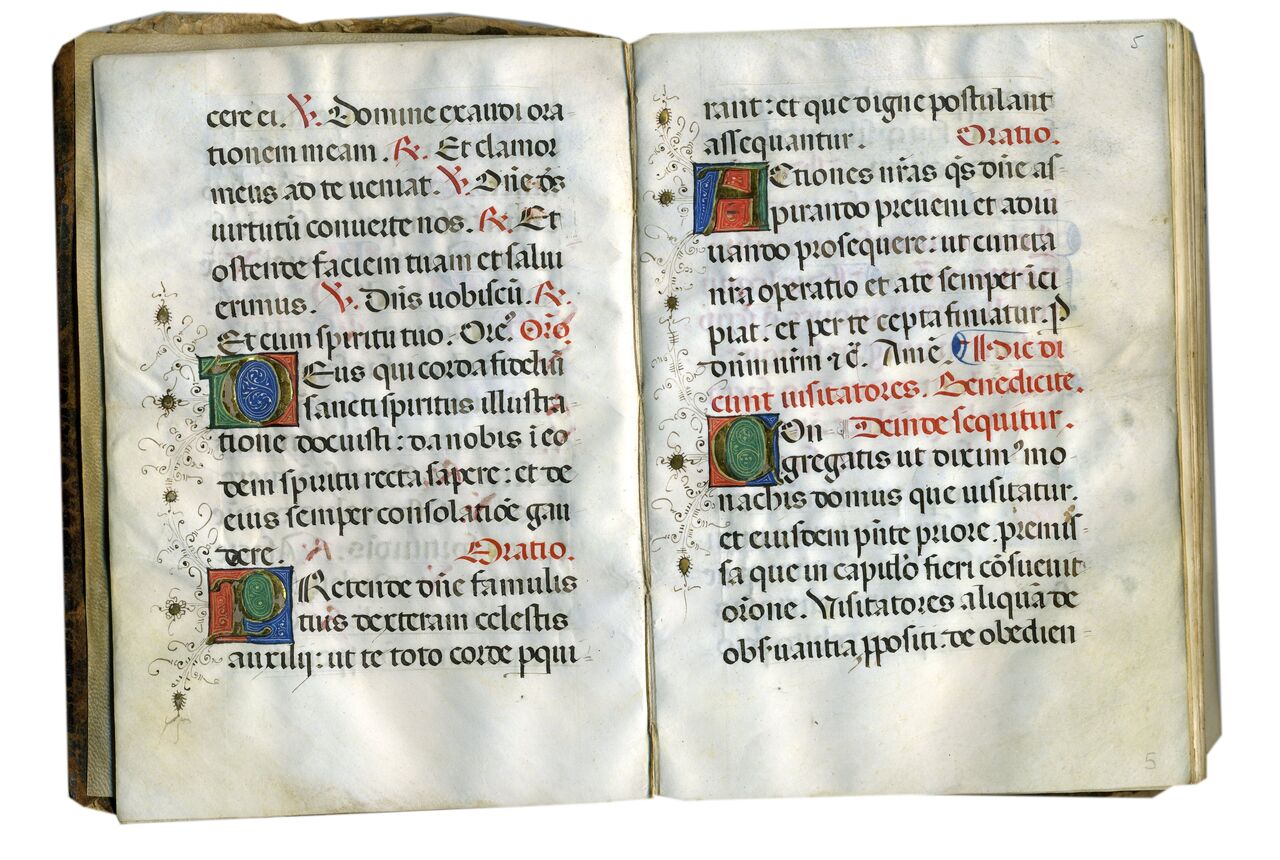 cere ei. V. Domine exaudi ora-
tionem meam. R. Et clamor
meus ad te veniat. V. Dñe ds̄
virtutū converte nos. R. Et
ostende faciem tuam et salvi
erimus. V. Dñs vobiscū. R.
Et cum spiritu tuo. Ore᷒. Orō
DEus qui corda fideliū
sancti spiritus illustra-
tione docuisti: da nobis ī eo-
dem spiritu recta sapere: et de
eius semper consolatiōe gau-
dere. Oratio.
PRetende dñe famulis
tuis dexteram celestis
auxilij: ut te toto corde ꝑqui-
5
rant: et que digne postulant
assequantur. Oratio.
ACtiones nr̄as qs̄ dñe as-
pirando preveni et adiu-
vando prosequere: ut cuncta
nr̄a operatio et a te semper īci-
piat: et per te cepta finiatur. P
dūm nr̄m ⁊ c̄. Amē. Hic di
cunt visitatores. Benedicite.
COn Deinde sequitur.
gregatis ut diximꝰ mo-
nachis domus que visitatur.
et eiusdem pñte priore. premis-
sa que in capitl̓o fieri cōsuevit
orōne. Visitatores aliquā de
obs̓vantia ꝓpositi. de obedien-
5